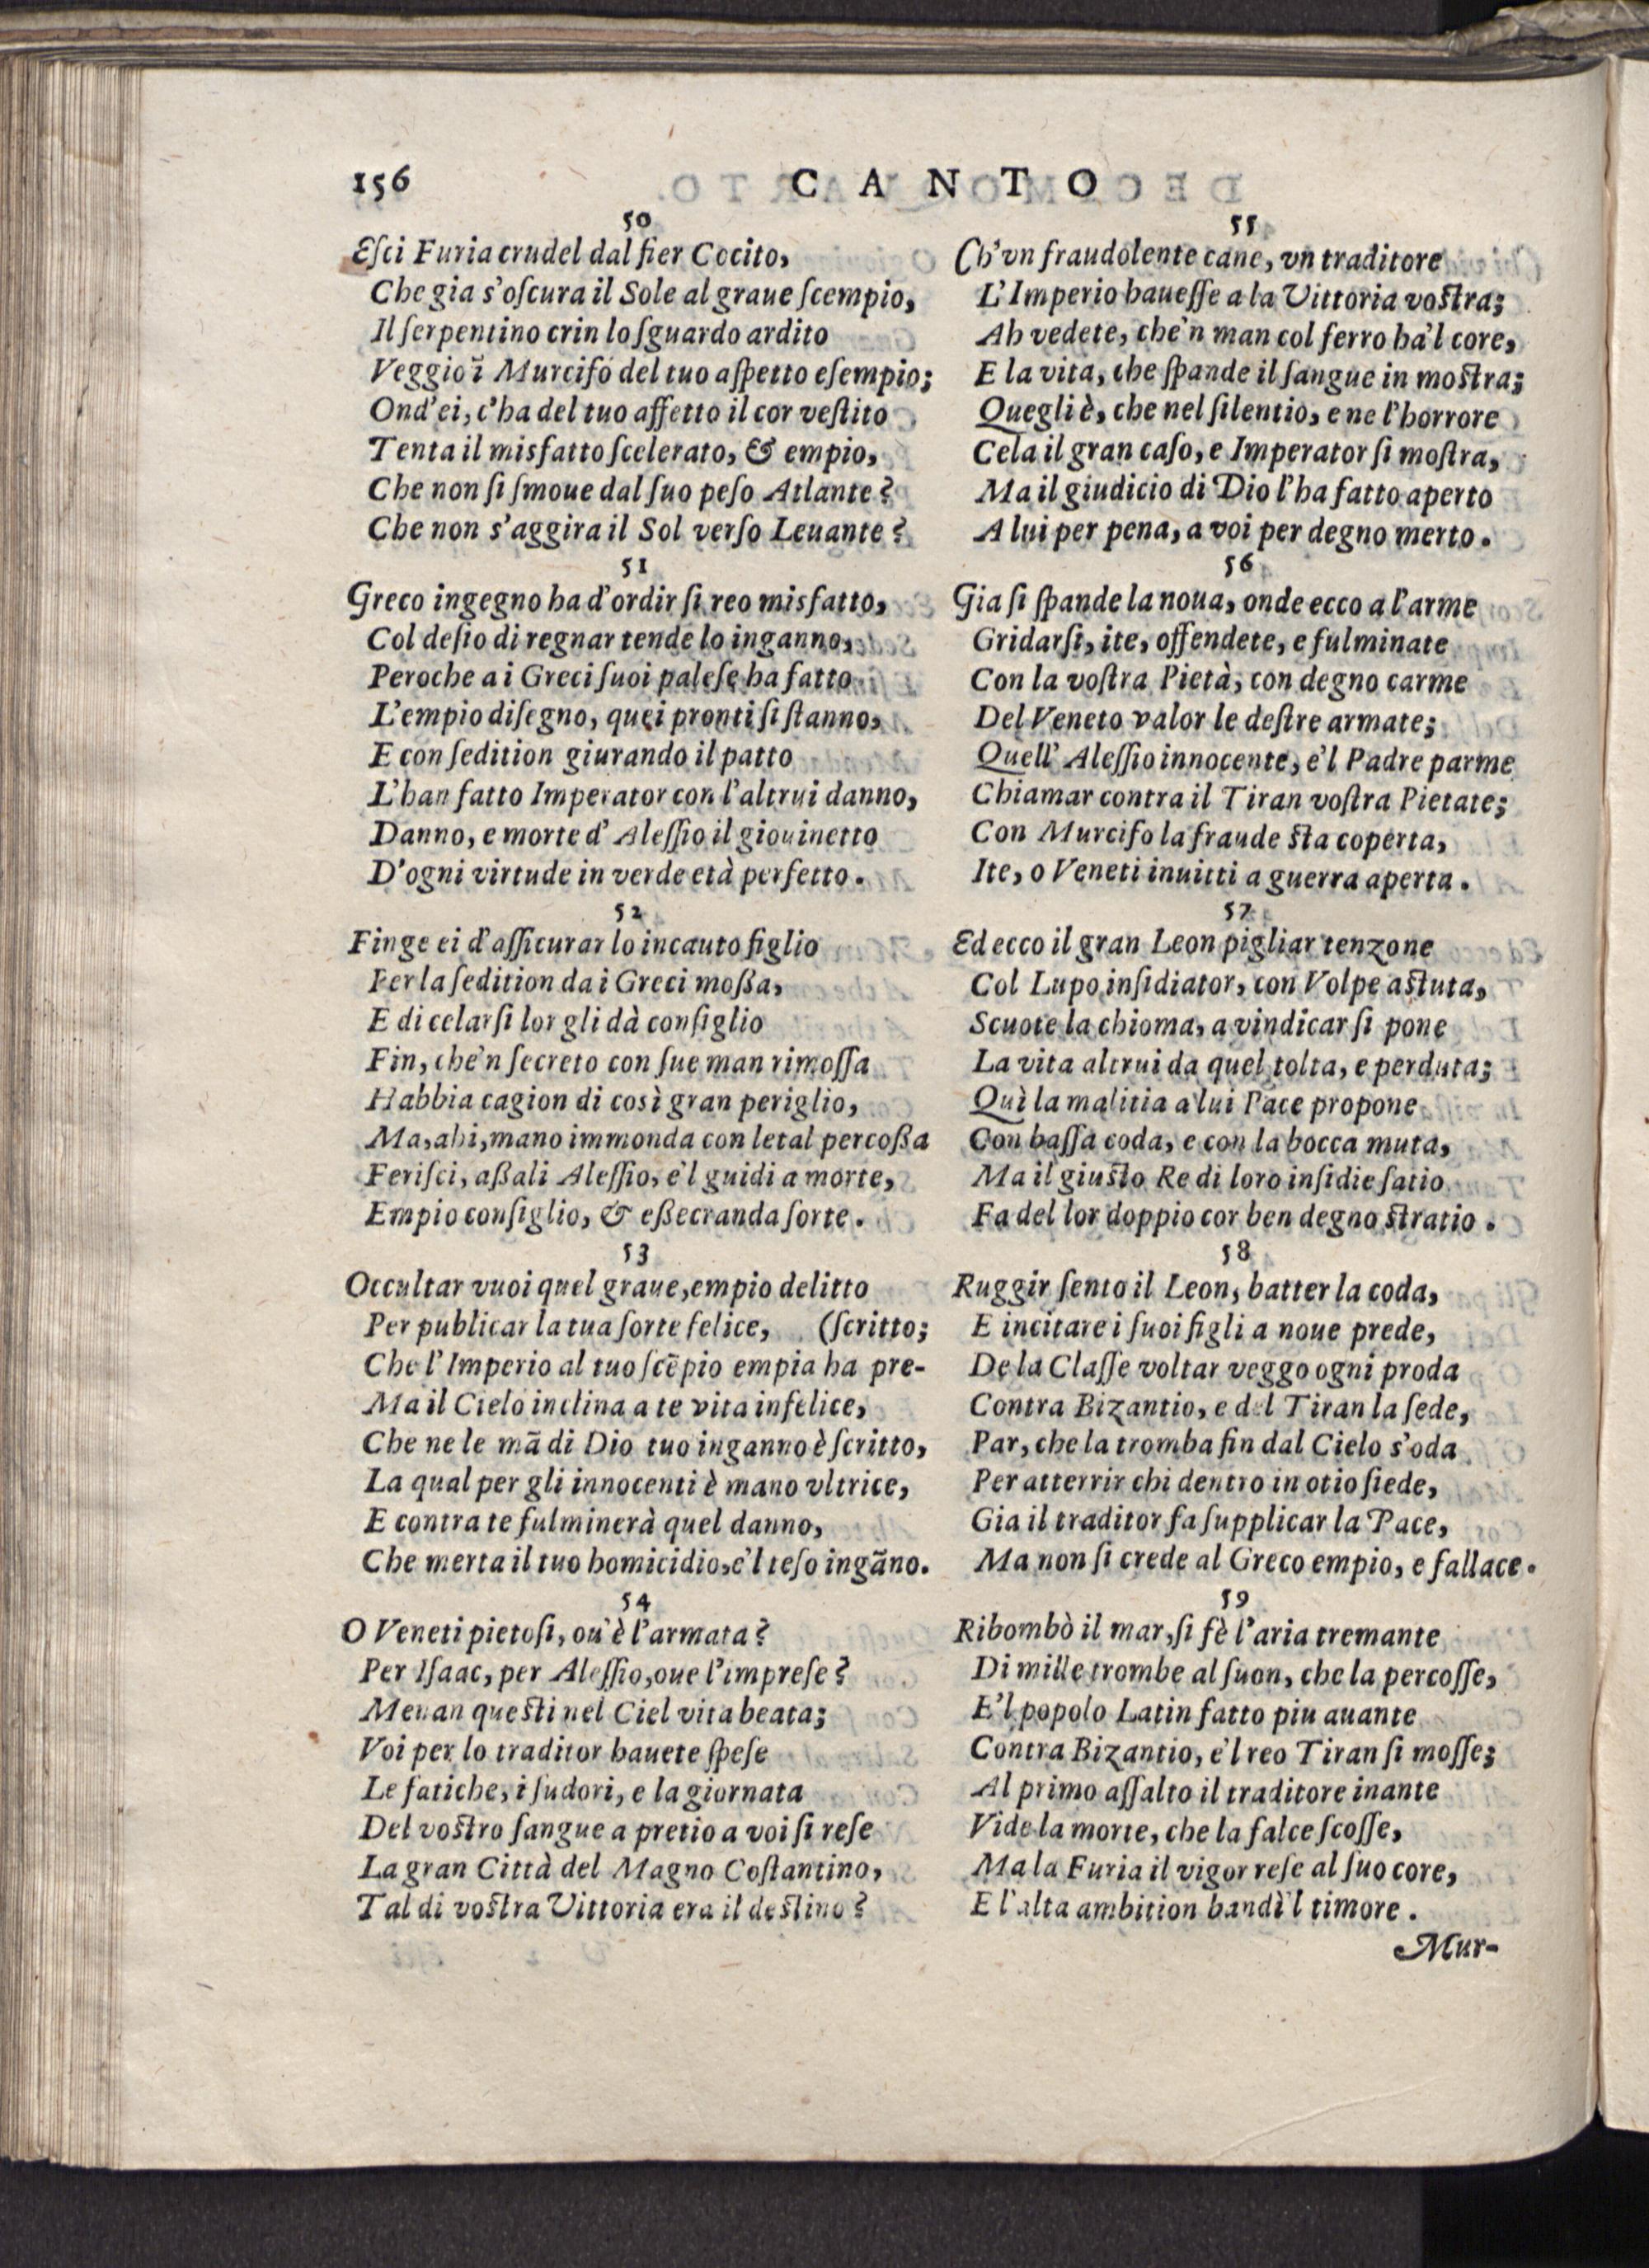 156 CANTO
50
Eſci Furia crudel dal fier Cocito,
Che gia s'oſcura il Sole al graue ſcempio,
Il ſerpentino crin lo ſguardo ardito
Veggio ĩ Murcifo del tuo aſpetto eſempio;
Ond'ei, c'ha del tuo affetto il cor veſtito
Tenta il misfatto ſcelerato, & empio,
Che non ſi ſmoue dal ſuo peſo Atlante?
Che non s'aggira il Sol verſo Leuante?
51
Greco ingegno ha d'ordir ſi reo misfatto,
Col deſio di regnar tende lo inganno,
Peroche a i Greci ſuoi paleſe ha fatto
L'empio diſegno, quei pronti ſi ſtanno,
E con ſedition giurando il patto
L'han fatto Imperator con l'altrui danno,
Danno, e morte d'Aleſſio il giouinetto
D'ogni virtude in verde età perfetto.
52
Finge ei d'aſſicurar lo incauto figlio
Per la ſedition da i Greci moßa,
E di celarſi lor gli dà conſiglio
Fin, che'n ſecreto con ſue man rimoſſa
Habbia cagion di così gran periglio,
Ma, ahi, mano immonda con letal percoßa
Feriſci, aßali Aleſſio, e'l guidi a morte,
Empio conſiglio, & eßecranda ſorte.
53
Occultar vuoi quel graue, empio delitto
Per publicar la tua ſorte felice, (ſcritto;
Che l'Imperio al tuo ſcẽpio empia ha pre-
Ma il Cielo inclina a te vita infelice,
Che ne le mã di Dio tuo inganno è ſcritto,
La qual per gli innocenti è mano vltrice,
E contra te fulminerà quel danno,
Che merta il tuo homicidio, e'l teſo ingãno.
54
O Veneti pietoſi, ou'è l'armata?
Per Iſaac, per Aleſſio, oue l'impreſe?
Menan queſti nel Ciel vita beata;
Voi per lo traditor hauete ſpeſe
Le fatiche, i ſudori, e la giornata
Del voſtro ſangue a pretio a voi ſi reſe
La gran Città del Magno Coſtantino,
Tal di voſtra Vittoria era il deſtino?
55
Ch'vn fraudolente cane, vn traditore
L'Imperio haueſſe a la Vittoria voſtra;
Ah vedete, che'n man col ferro ha'l core,
E la vita, che ſpande il ſangue in moſtra;
Quegli è, che nel ſilentio, e ne l'horrore
Cela il gran caſo, e Imperator ſi moſtra,
Ma il giudicio di Dio l'ha fatto aperto
A lui per pena, a voi per degno merto.
56
Gia ſi ſpande la noua, onde ecco a l'arme
Gridarſi, ite, offendete, e fulminate
Con la voſtra Pietà, con degno carme
Del Veneto valor le deſtre armate;
Quell'Aleſſio innocente, e'l Padre parme
Chiamar contra il Tiran voſtra Pietate;
Con Murcifo la fraude ſta coperta,
Ite, o Veneti inuitti a guerra aperta.
57
Ed ecco il gran Leon pigliar tenzone
Col Lupo inſidiator, con Volpe aſtuta,
Scuote la chioma, a vindicar ſi pone
La vita altrui da quel tolta, e perduta;
Quì la malitia a lui Pace propone
Con baſſa coda, e con la bocca muta,
Ma il giuſto Re di loro inſidie ſatio
Fa del lor doppio cor ben degno ſtratio.
58
Ruggir ſento il Leon, batter la coda,
E incitare i ſuoi figli a noue prede,
De la Claſſe voltar veggo ogni proda
Contra Bizantio, e del Tiran la ſede,
Par, che la tromba fin dal Cielo s'oda
Per atterrir chi dentro in otio ſiede,
Gia il traditor fa ſupplicar la Pace,
Ma non ſi crede al Greco empio, e fallace.
59
Ribombò il mar, ſi fè l'aria tremante
Di mille trombe al ſuon, che la percoſſe,
E'l popolo Latin fatto piu auante
Contra Bizantio, e'l reo Tiran ſi moſſe;
Al primo aſſalto il traditore inante
Vide la morte, che la falce ſcoſſe,
Ma la Furia il vigor reſe al ſuo core,
E l'alta ambition bandì'l timore.
Mur-